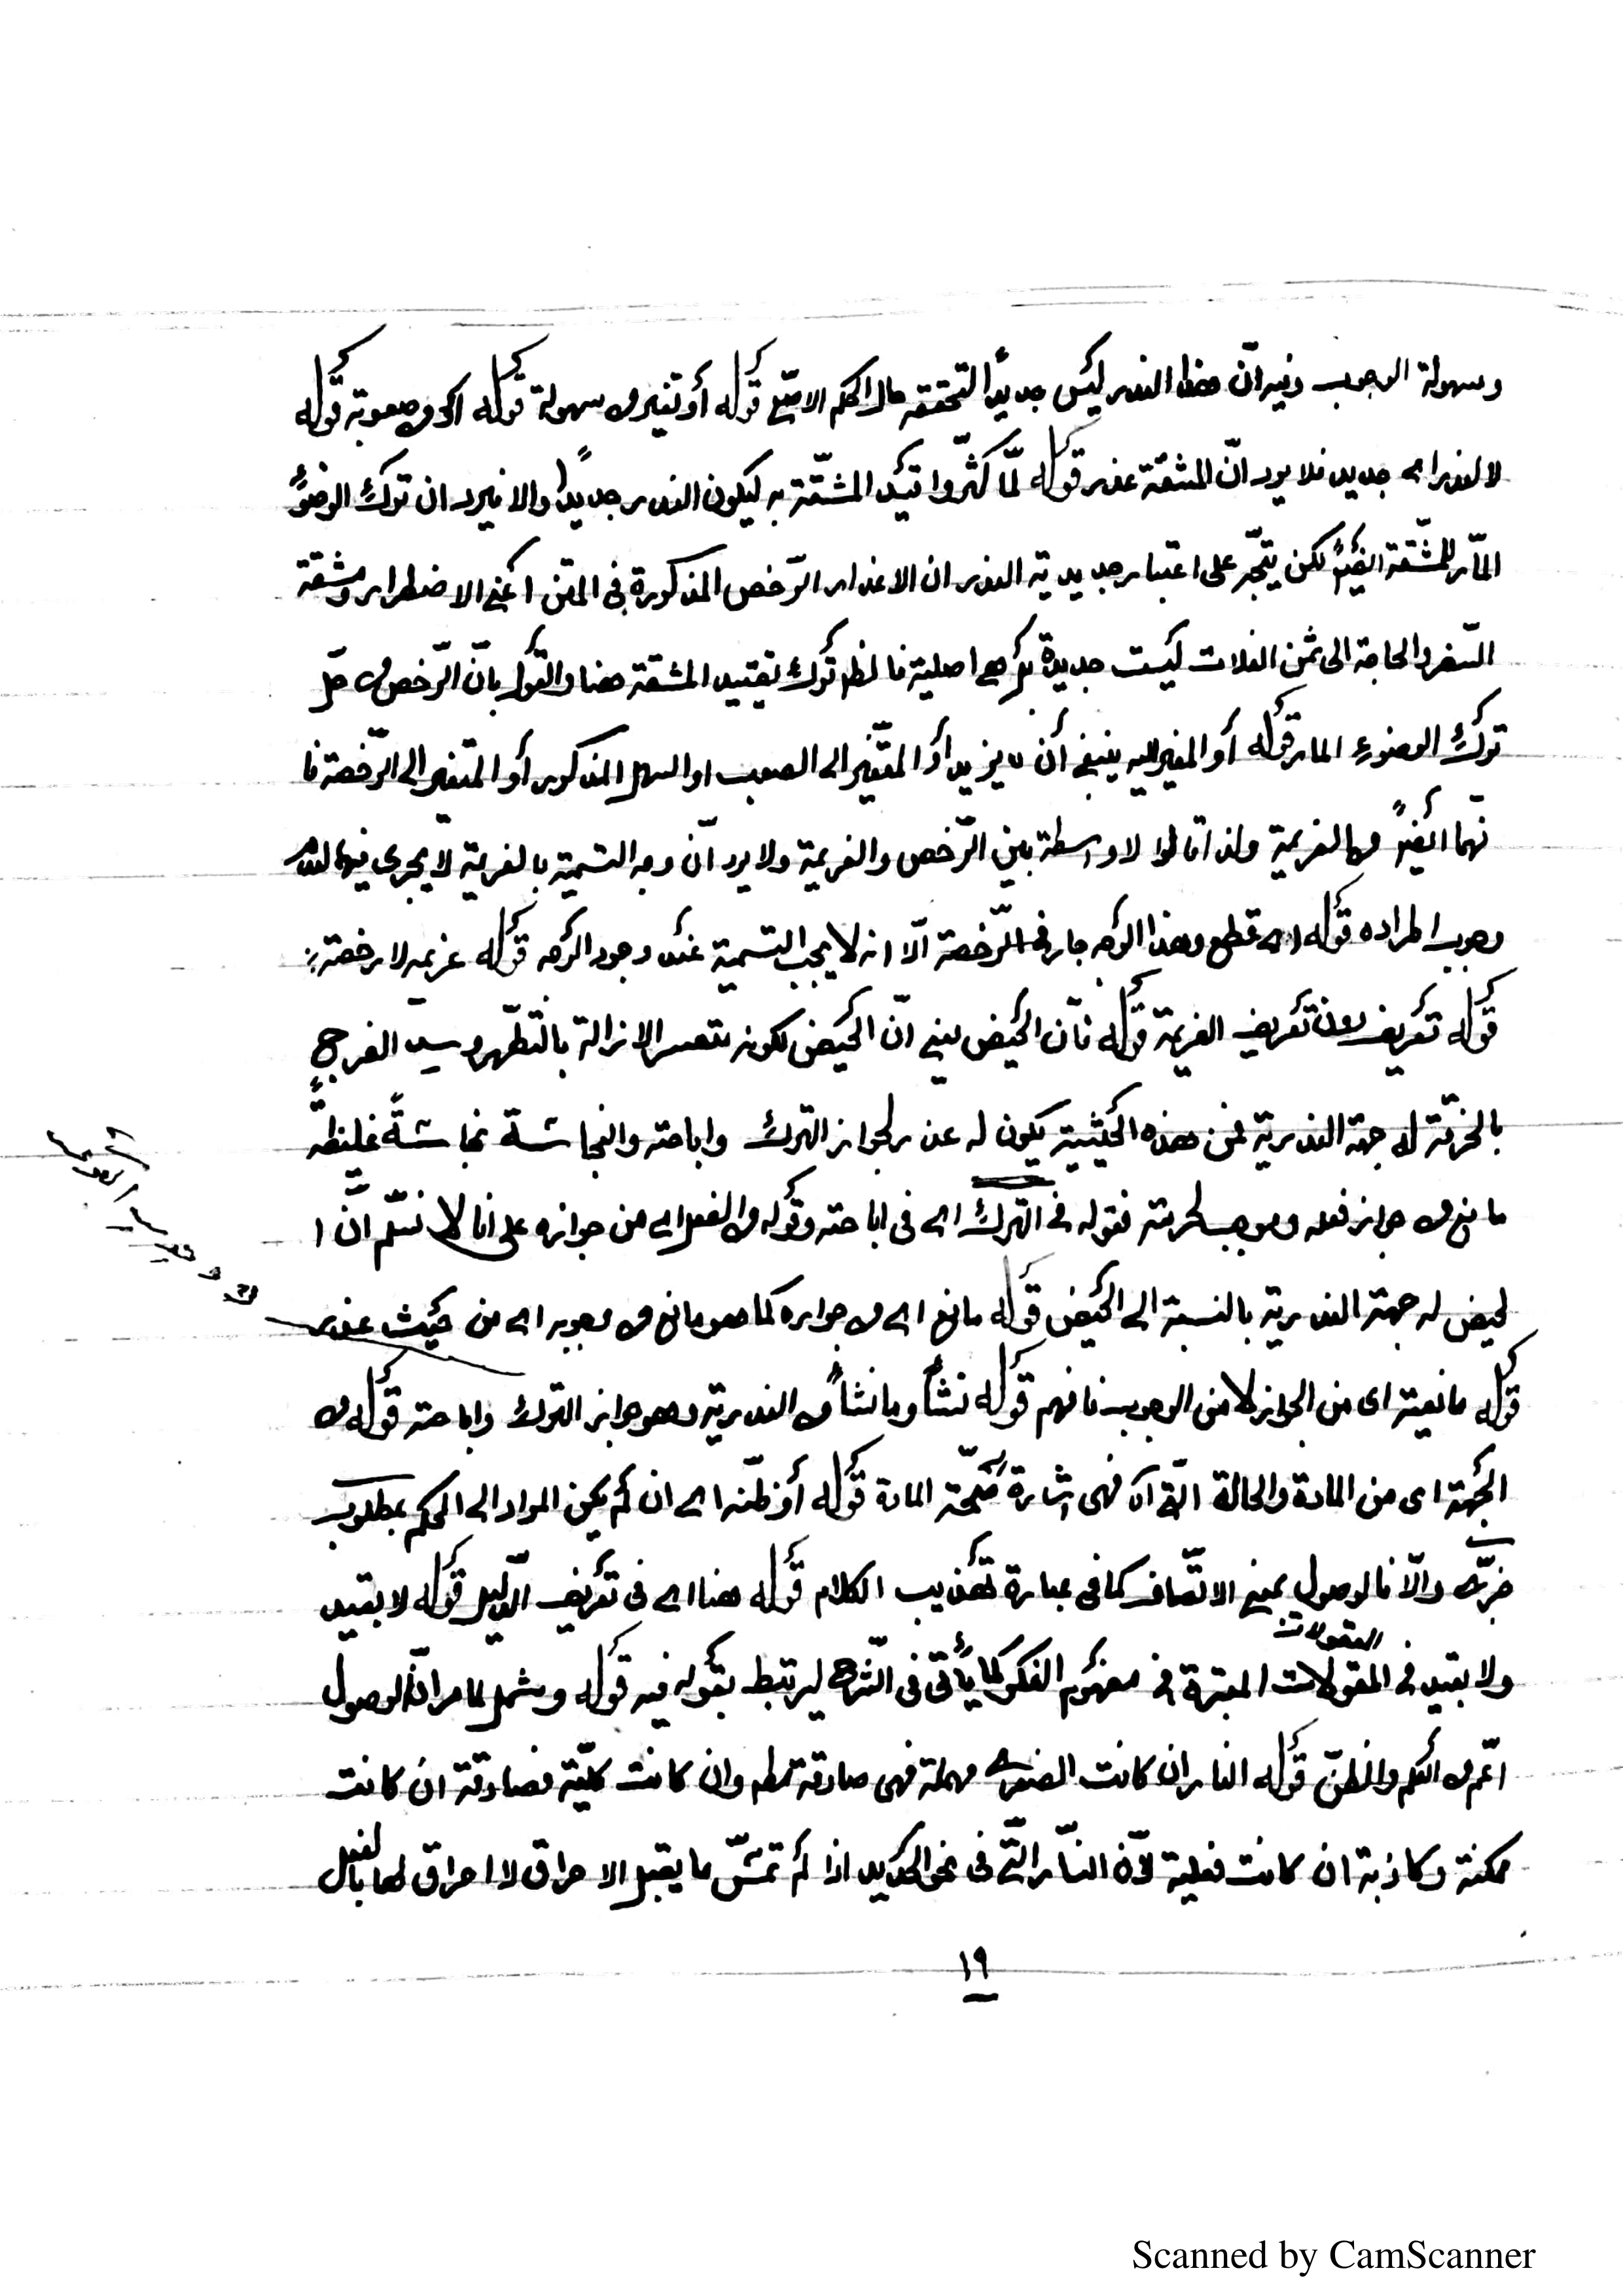 وسهولة الوجوب وفيه انّ هذا العذر ليس جديدًا لتحققه حال الحكم الاصلي قوله أو تغير من سهولة قوله اى من صعوبة قوله
لا لعذر اى جديد فلا يرد انّ المشقة عذر قوله لمّا كثروا قيّد المشقّة به ليكون العذر جديدًا والا فيرد ان ترك الوضوء
المارّ للمشقة ايضًا لكن يتجّه على اعتبار جديدية العذر ان الاعذار الرّخص المذكورة فى المتن اعني الاضطرار ومشقة
السّفر والحاجة الى ثمن الغلات ليست جديدة بل هى اصلية فالظاهر ترك تقييد المشقة هنا والقول بانّ الرّخص من حلّ
ترك الوضوء المار قوله أو المغير اليه ينبغى أن يزيد أو المتغيّر الى الصعب او السهل المذكور أو المتغير الى الرّخصة فا
نهما ايضًا من العزيمة ولذا قالوا لا واسطة بين الرّخص والعزيمة ولا يرد انّ وجه التسمية بالعزيمة لا يجرى فيها لعدم
وجوب اطراده قوله اى قطع وهذا الوجه جار فى الرّخصة الّا انه لا يجب التسمية عند وجود الوجه قوله عزيمة لا رخصة
قوله تعريف تعريف العزيمة قوله فانّ الحيض يعنى انّ الحيض لكونه متعسر الازالة بالتطهّر وسدّ الفرج
بالخرقة له جهة العذرية فمن هذه الحيثية يكون له عذر لجواز الترك واباحته والنجاسة نجاسةً غليظةً
مانع من جواز فعله وموجب لحرمته فقوله فى الترك اى فى اباحته وقوله من الفعل اى من جوازه على انا لا نسلّم انّ ا
لحيض له جهة العذرية بالنسبة الى الحيض قوله مانع اى من جوازه كما هو مانع من وجوبه اى من حيث عذر
قوله مانعيته اى من الجواز لا من الوجوب فافهم قوله نشأ وما نشأ من العذرية وهو جواز الترك واباحته قوله من
الجهة اى من المادة والحالة فهى اشارة المادة قوله أو ظنّه اى ان لم يكن المراد الى الحكم بمطلوب
خبرى والّا فالوصول بمعنى الاتّصاف كما فى عبارة تهذيب الكلام قوله هنا اى فى تعريف الدّليل قوله لا بقيد
المعقولات
ولا بقيد فى المعقولات المعتبرة فى مفهوم الفكر كما يأتى فى الشّرح ليرتبط بقوله فيه قوله وشمل لما مر انّ الوصول
اعّم من العلم والظنّ قوله النار ان كانت الصغرى مهملة فهى صادقة وان كانت كليّة فصادقة ان كانت
ممكنة وكاذبة ان كانت فعلية لانّ النّار الّتى فى نحو الحديد اذا لم تمسّ ما يقبل الاحراق لا احراق لها بالفعل
١٩
Scanned by CamScanner